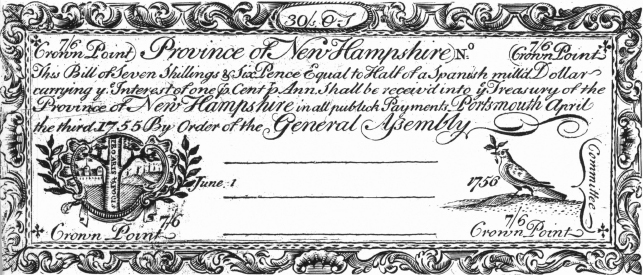 30/ O.T
7/6 7/6
Crown Point Province of New Hampshire No. Crown Point
This Bill of Seven Shillings & Six Pence Equal to Half of a Spanish mill'd Dollar
carrying ye Interest of one p Cent p Ann. Shall be receiv'd into ye Treasury of the
Province of New Hampshire in all publick Payments, Portsmouth April
the third 1755 By Order of the General Assembly
June 1 1756 Committee
7/6 7/6
Crown Point Crown Point